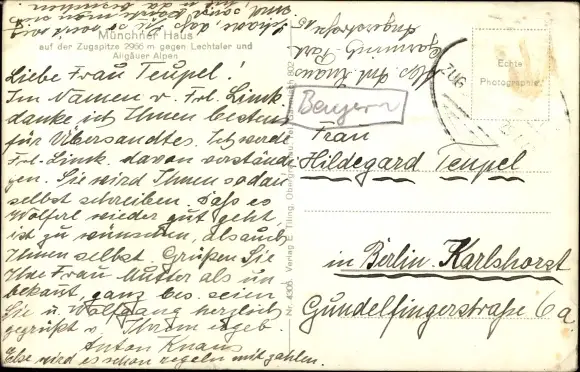 Münchner Haus
auf der Zugspitze 2966 m gegen Lechtaler und
Allgäuer Alpen
Liebe Frau Teupel!
Im Namen v. Frl. Limk
danke ich Ihnen bestens
für Übersandtes. Ich werde
Frl. Limk. davon verständi-
gen. Sie wird Ihnen sodan
selbst schreiben. Daß es
Wolferl wieder gut geht,
ist zu wünschen, als auch
Ihnen selbst. Grüßen Sie
Ihre Frau Mutter als un
bekannt, ganz bes. seien
Sie u. Wolfgang herzlich
gegrüßt v. Ihrem ergeb.
Anton Knaus
Else wird es schon regeln mit zahlen.
schade, daß Sie so
Abs. Ant. Knaus
Garmisch Part
Angerstraße 15
Bayern
ZUG
Echte
Photographie
Nr. 4305 Verlag E. Tilling,
Frau
Hildegard Teupel
in Berlin-Karlshorst
Gundelfingerstraße 6a